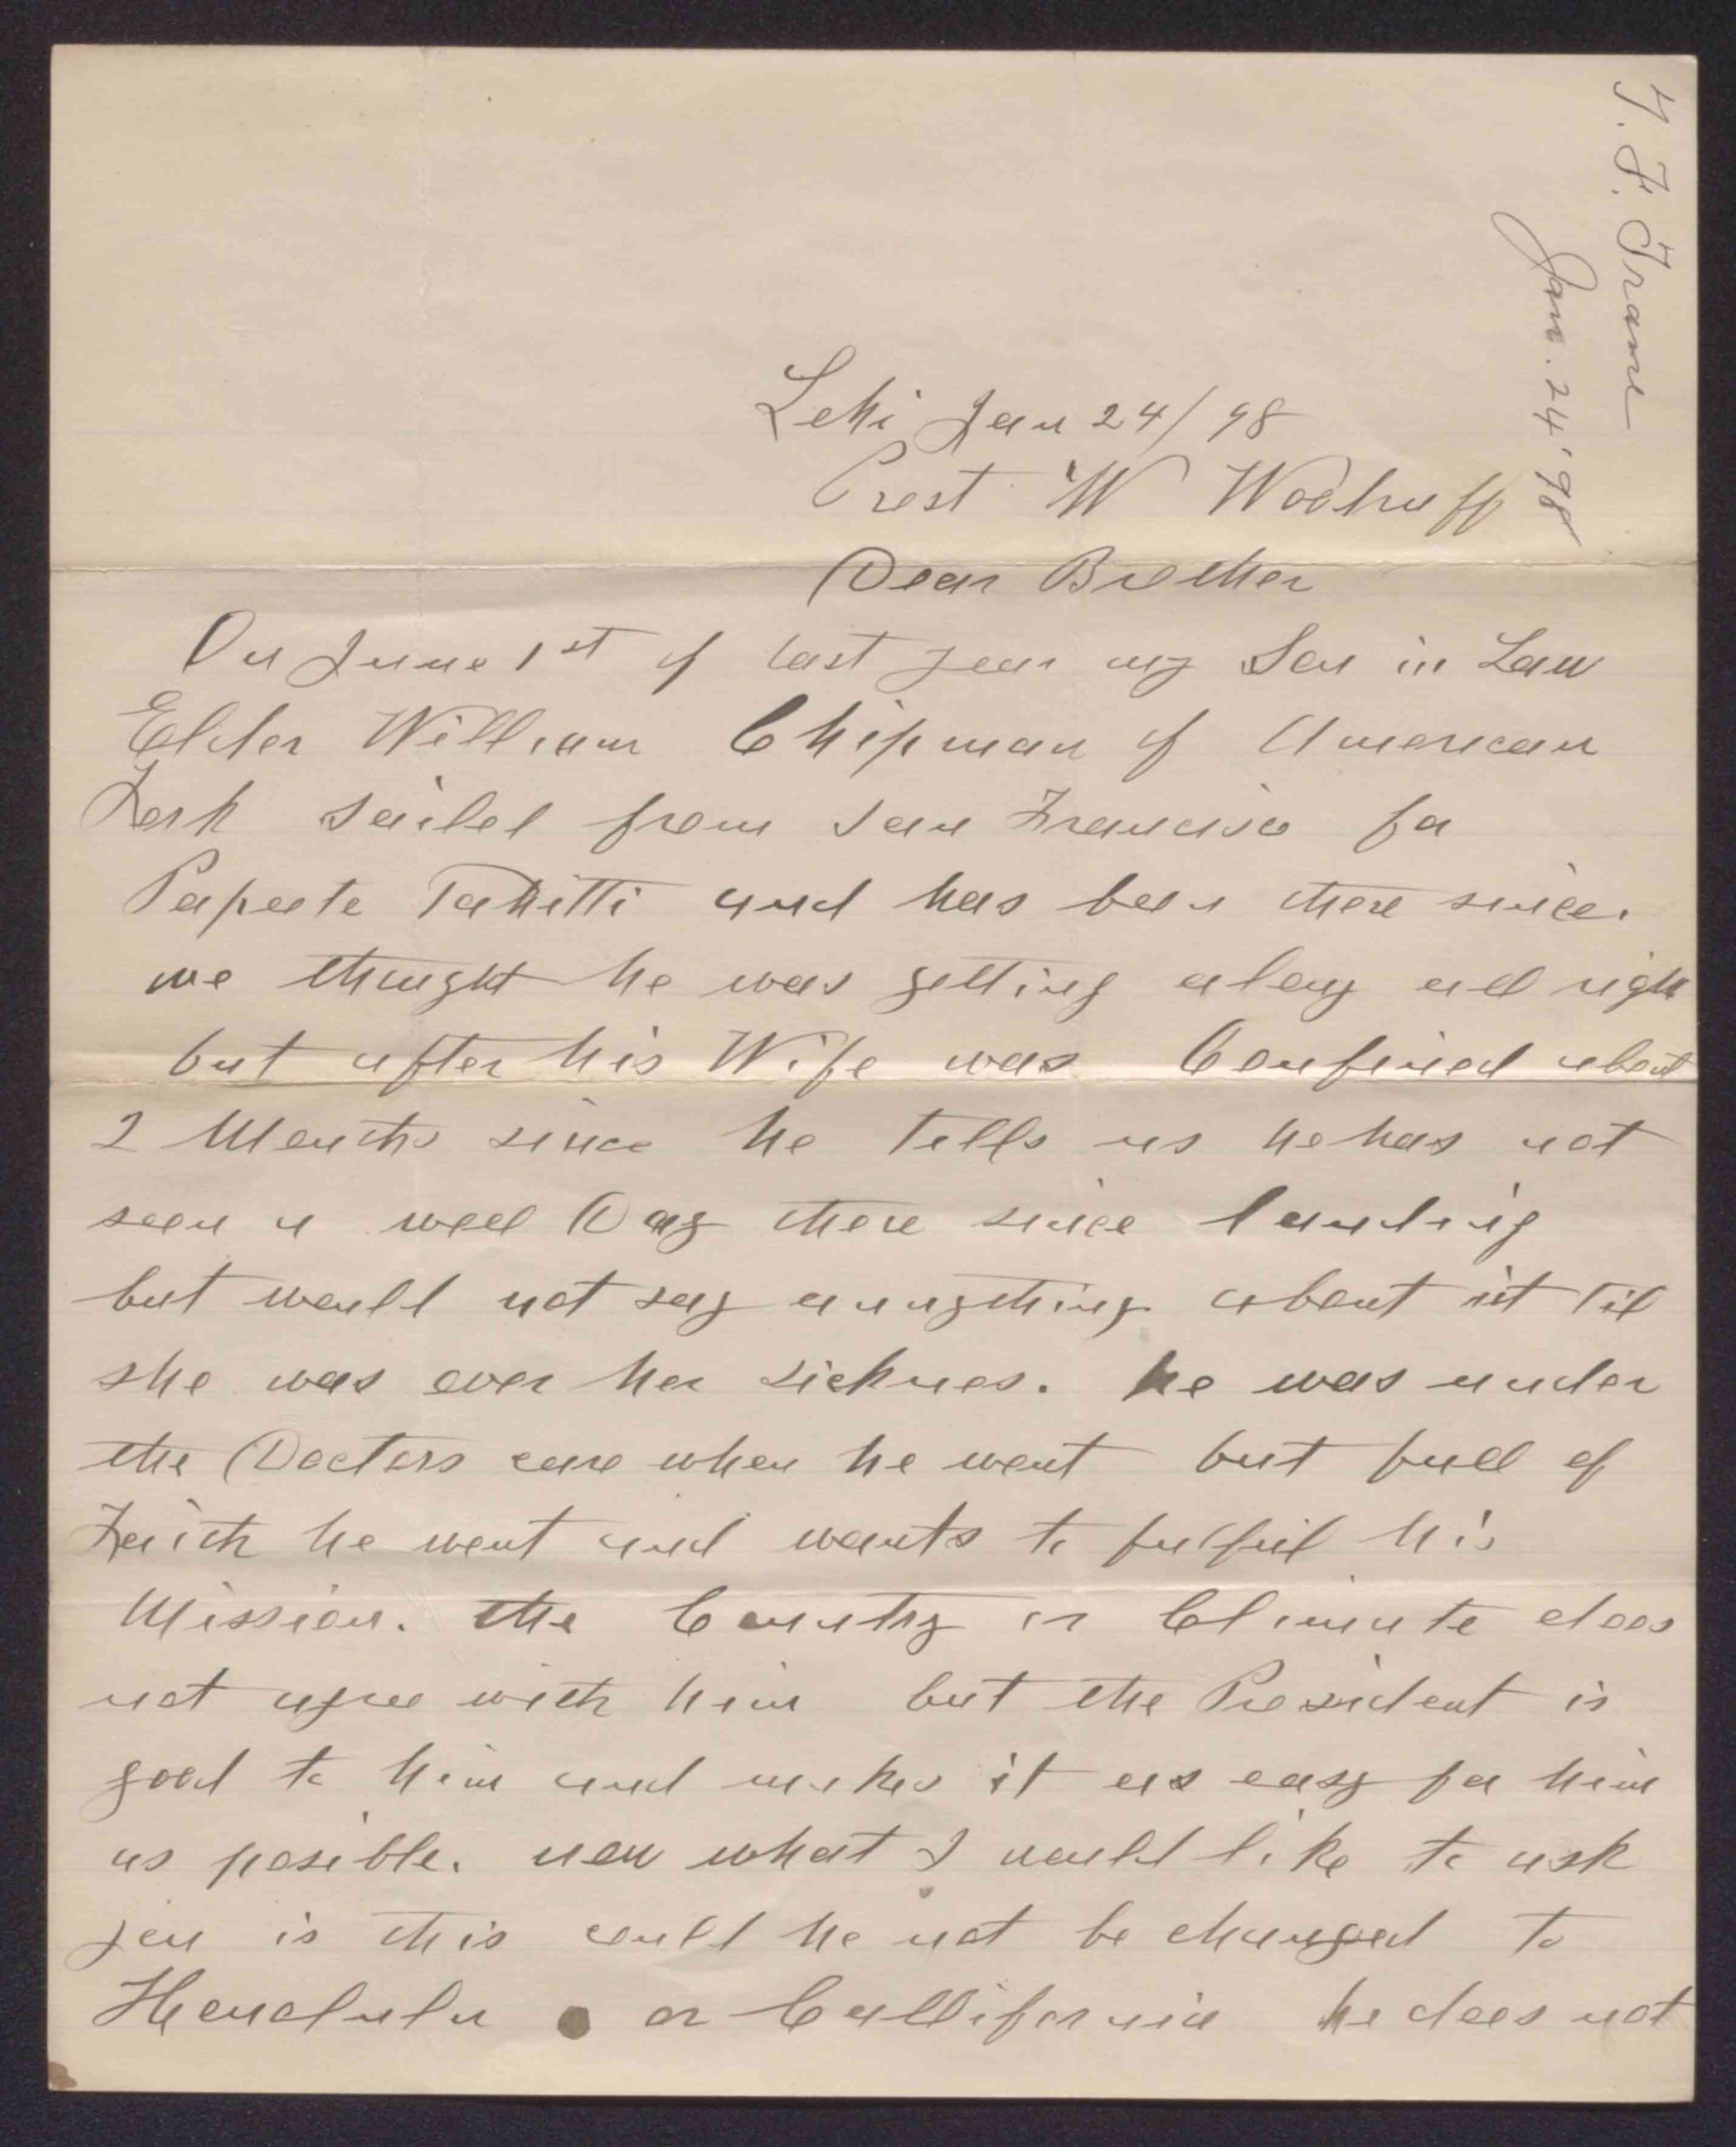 T. F. Trane
Jan. 24 '98
Lehi Jan 24/98
Prest W Woodruff
Dear Brother
On June 1st of last year my Son in Law
Elder William Chipman of American
Fork sailed from San Francisco for
Papeete Tahitti and has been there since.
we thought he was getting along all right
but after his Wife was Confined about
2 Months since he tells us he has not
seen a well Day there since landing
but would not say annything about it til
she was over her sicknes. he was under
the Doctors care when he went but full of
Faith he went and wants to fulfil his
Mission. the Country or Climate does
not agree with him but the President is
good to him and makes it as easy for him
as posible. now what I would like to ask
you is this could he not be changed to
Honolulu or Callifornia he does not